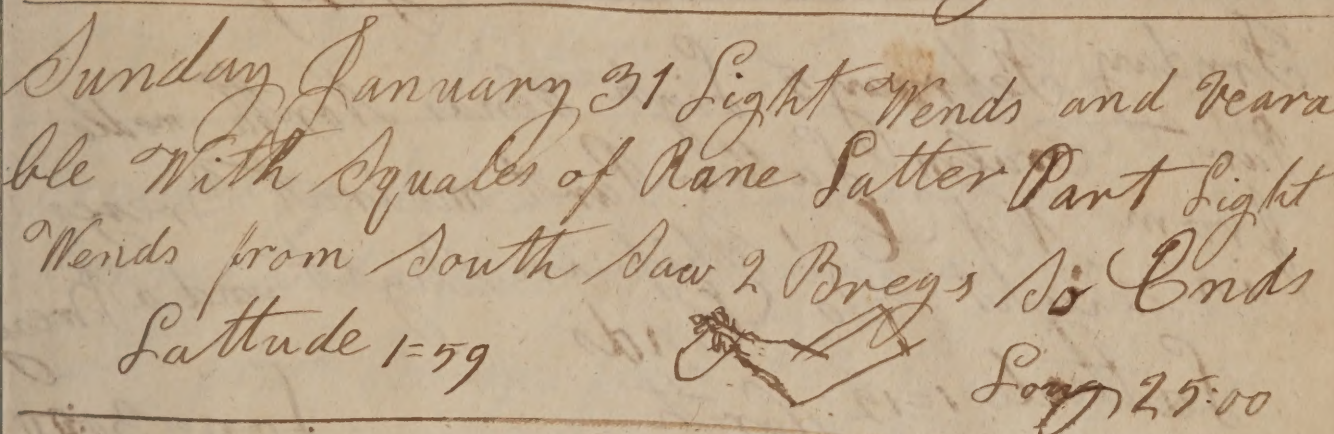 Sunday January 31 Light Wends and veara
ble With Squales of Rane Latter Part Light
Wends from South Saw 2 Bregs So Ends
Lattude 1=59 Long 25:00